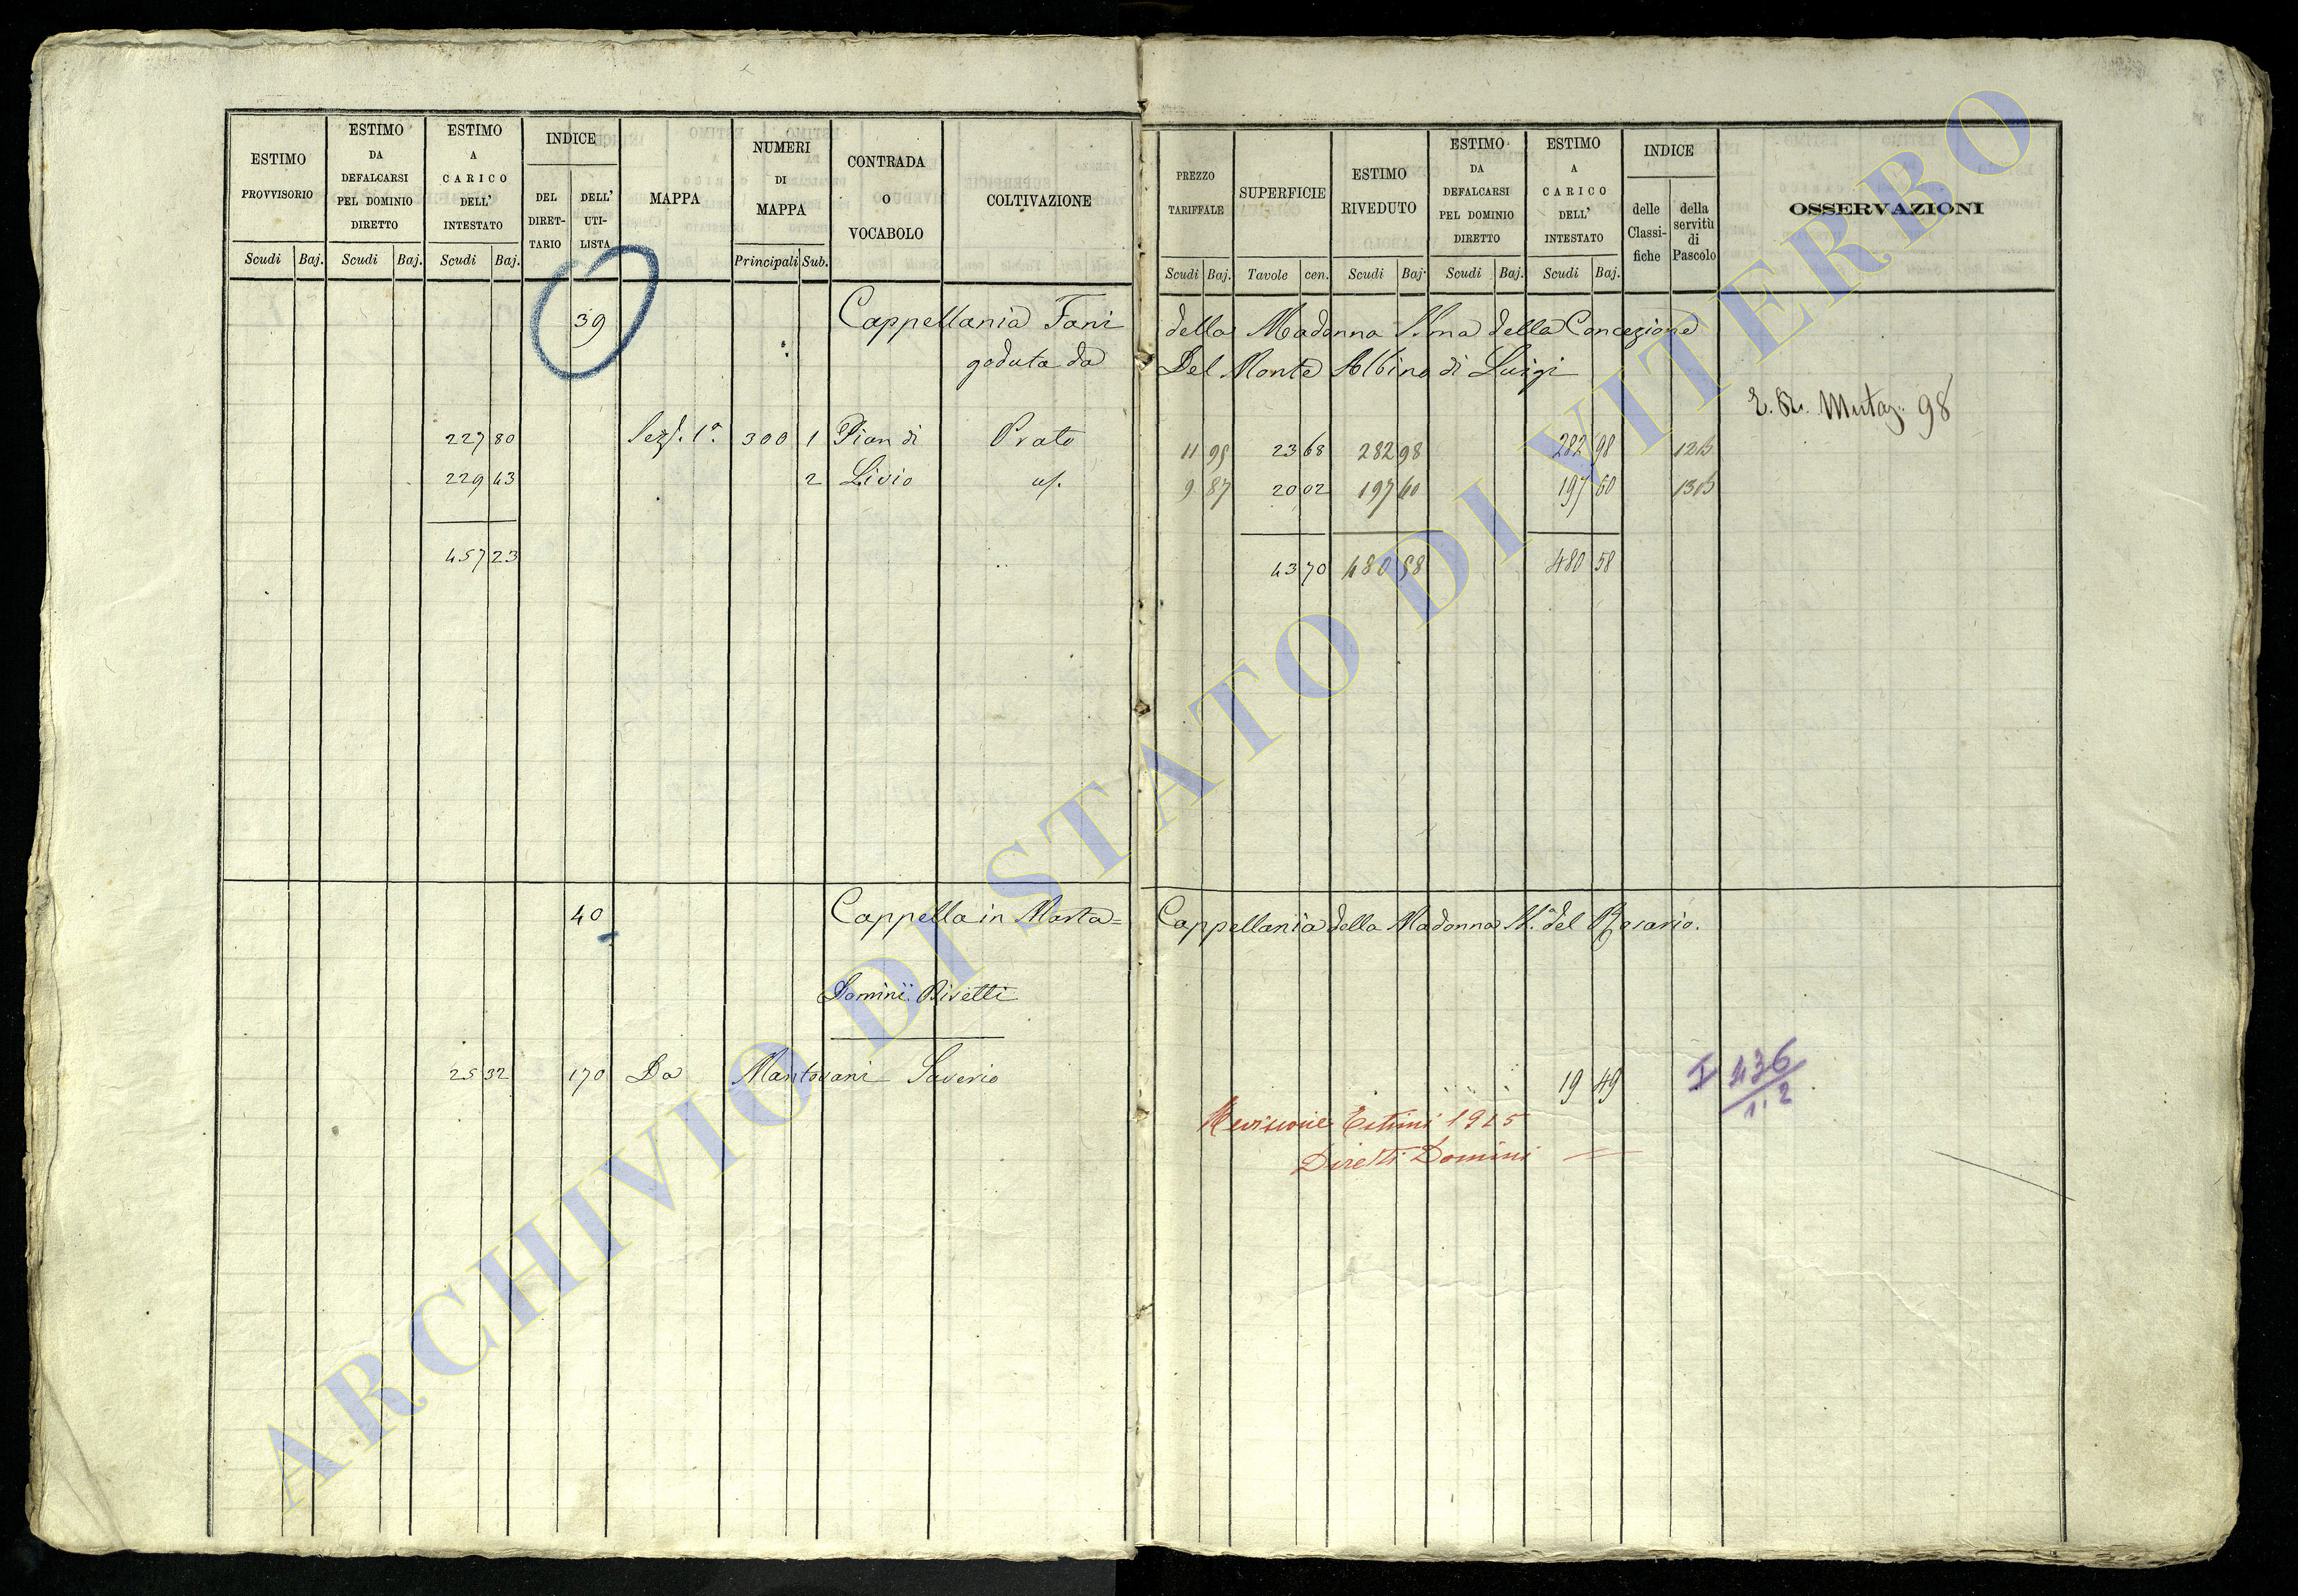 ESTIMO PROVVISORIO
ESTIMO DA DEFALCARSI PEL DOMINIO DIRETTO
ESTIMO A CARICO DELL' INTESTATO
INDICE
DEL DIRET-TARIO
DELL' UTI-LISTA
MAPPA
NUMERI DI MAPPA
CONTRADA O VOCABOLO
COLTIVAZIONE
Scudi Baj. Scudi Baj. Scudi Baj. Principali Sub.
PREZZO TARIFFALE
SUPERFICIE
ESTIMO RIVEDUTO
ESTIMO DA DEFALCARSI PEL DOMINIO DIRETTO
ESTIMO A CARICO DELL' INTESTATO
INDICE
delle Classi-fiche
della servitù di Pascolo
OSSERVAZIONI
Scudi Baj. Tavole cen. Scudi Baj. Scudi Baj. Scudi Baj.
39 Cappellania Fani della Madonna S.ma della Concezione
goduta da Del Monte Albino di Luigi
Mutaz. 98
227 80 Sez. 1a. 300 1 Pian di Prato 11 95 23 68 282 98 282 98
229 43 2 Livio 9 87 20 02 197 60 197 60
457 23 43 70 480 58 480 58
40 Cappella in Marta= Cappellania della Madonna SS. del Rosario.
Dominii Diretti
25 32 170 Da Mantovani Saverio 19 49
I 436
1.2
Revisione Estimi 1915
Diretti Domini =
ARCHIVIO DI STATO DI VITERBO